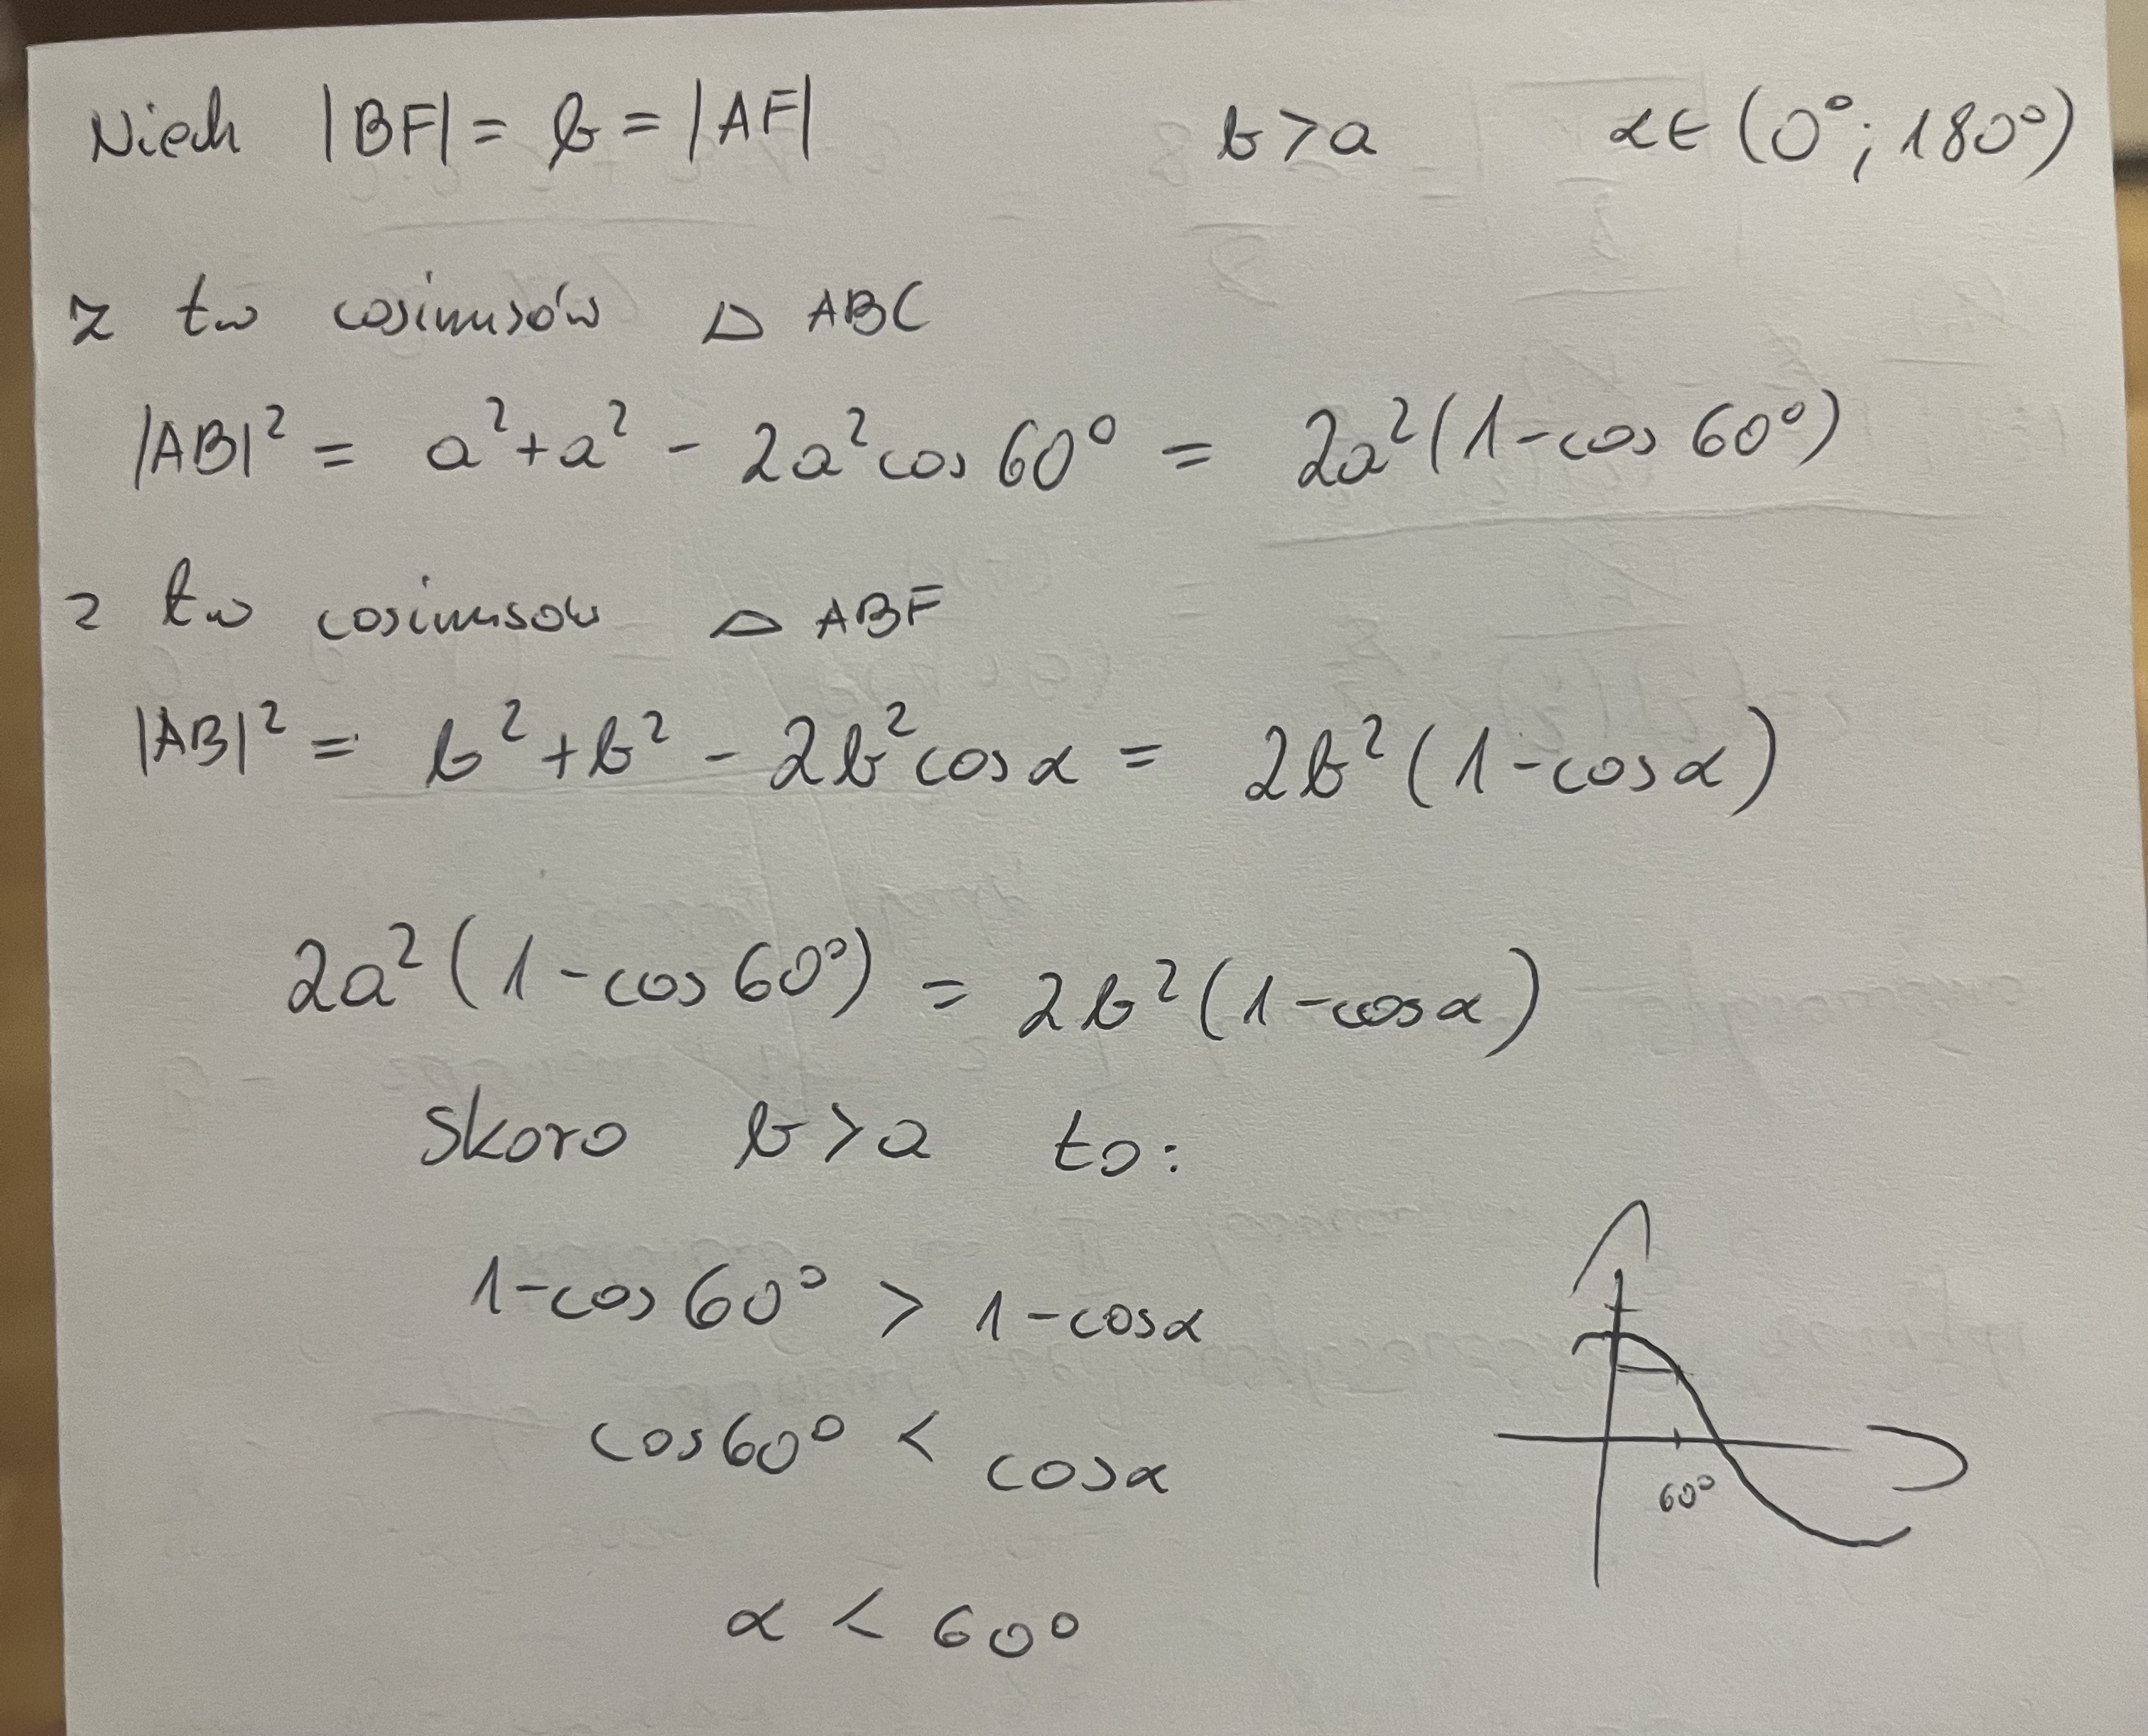 Niech |BF| = b = |AF| b > a α ∈ (0°; 180°)
z tw cosinusów △ ABC
|AB|² = a² + a² - 2a² cos 60° = 2a² (1 - cos 60°)
z tw cosinusow △ ABF
|AB|² = b² + b² - 2b² cos α = 2b² (1 - cos α)
2a² (1 - cos 60°) = 2b² (1 - cos α)
skoro b > a to:
1 - cos 60° > 1 - cos α
cos 60° < cos α
60°
α < 60°